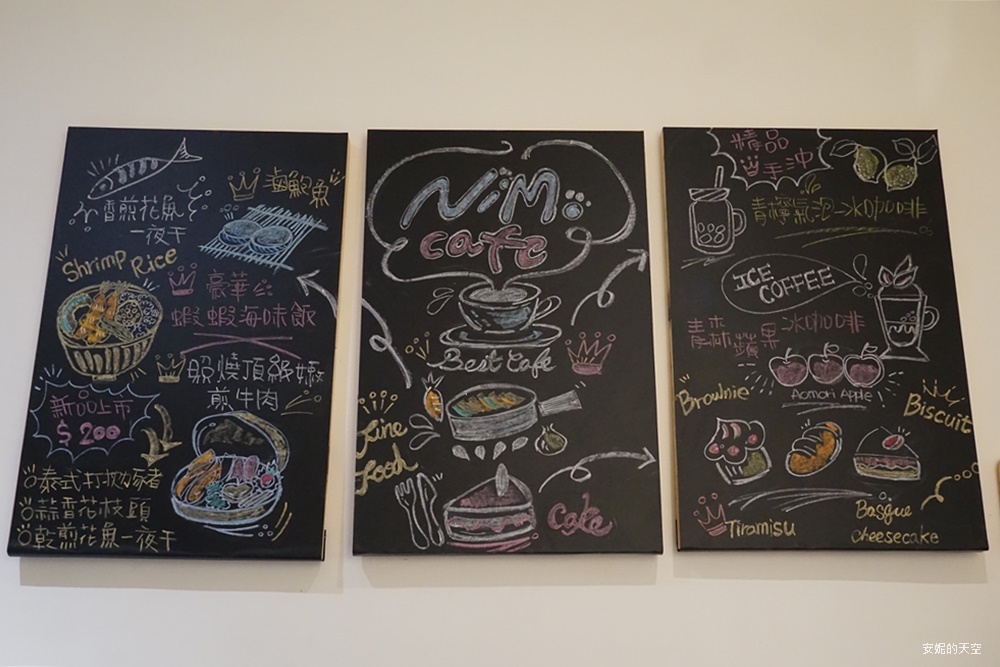 香煎花魚
一夜干
鹵鮑魚
Shrimp Rice
豪華
蝦蝦海味飯
照燒頂級嫩
煎牛肉
新品上市
$200
泰式打拋豬
蒜香花枝頭
乾煎花魚一夜干
NiMO
cafe
Best Cafe
Fine
Food
Cake
精品
手沖
青檸氣泡冰咖啡
ICE
COFFEE
青森蘋果冰咖啡
Aomori Apple
Brownie
Biscuit
Tiramisu
Basque
cheesecake
安妮的天空